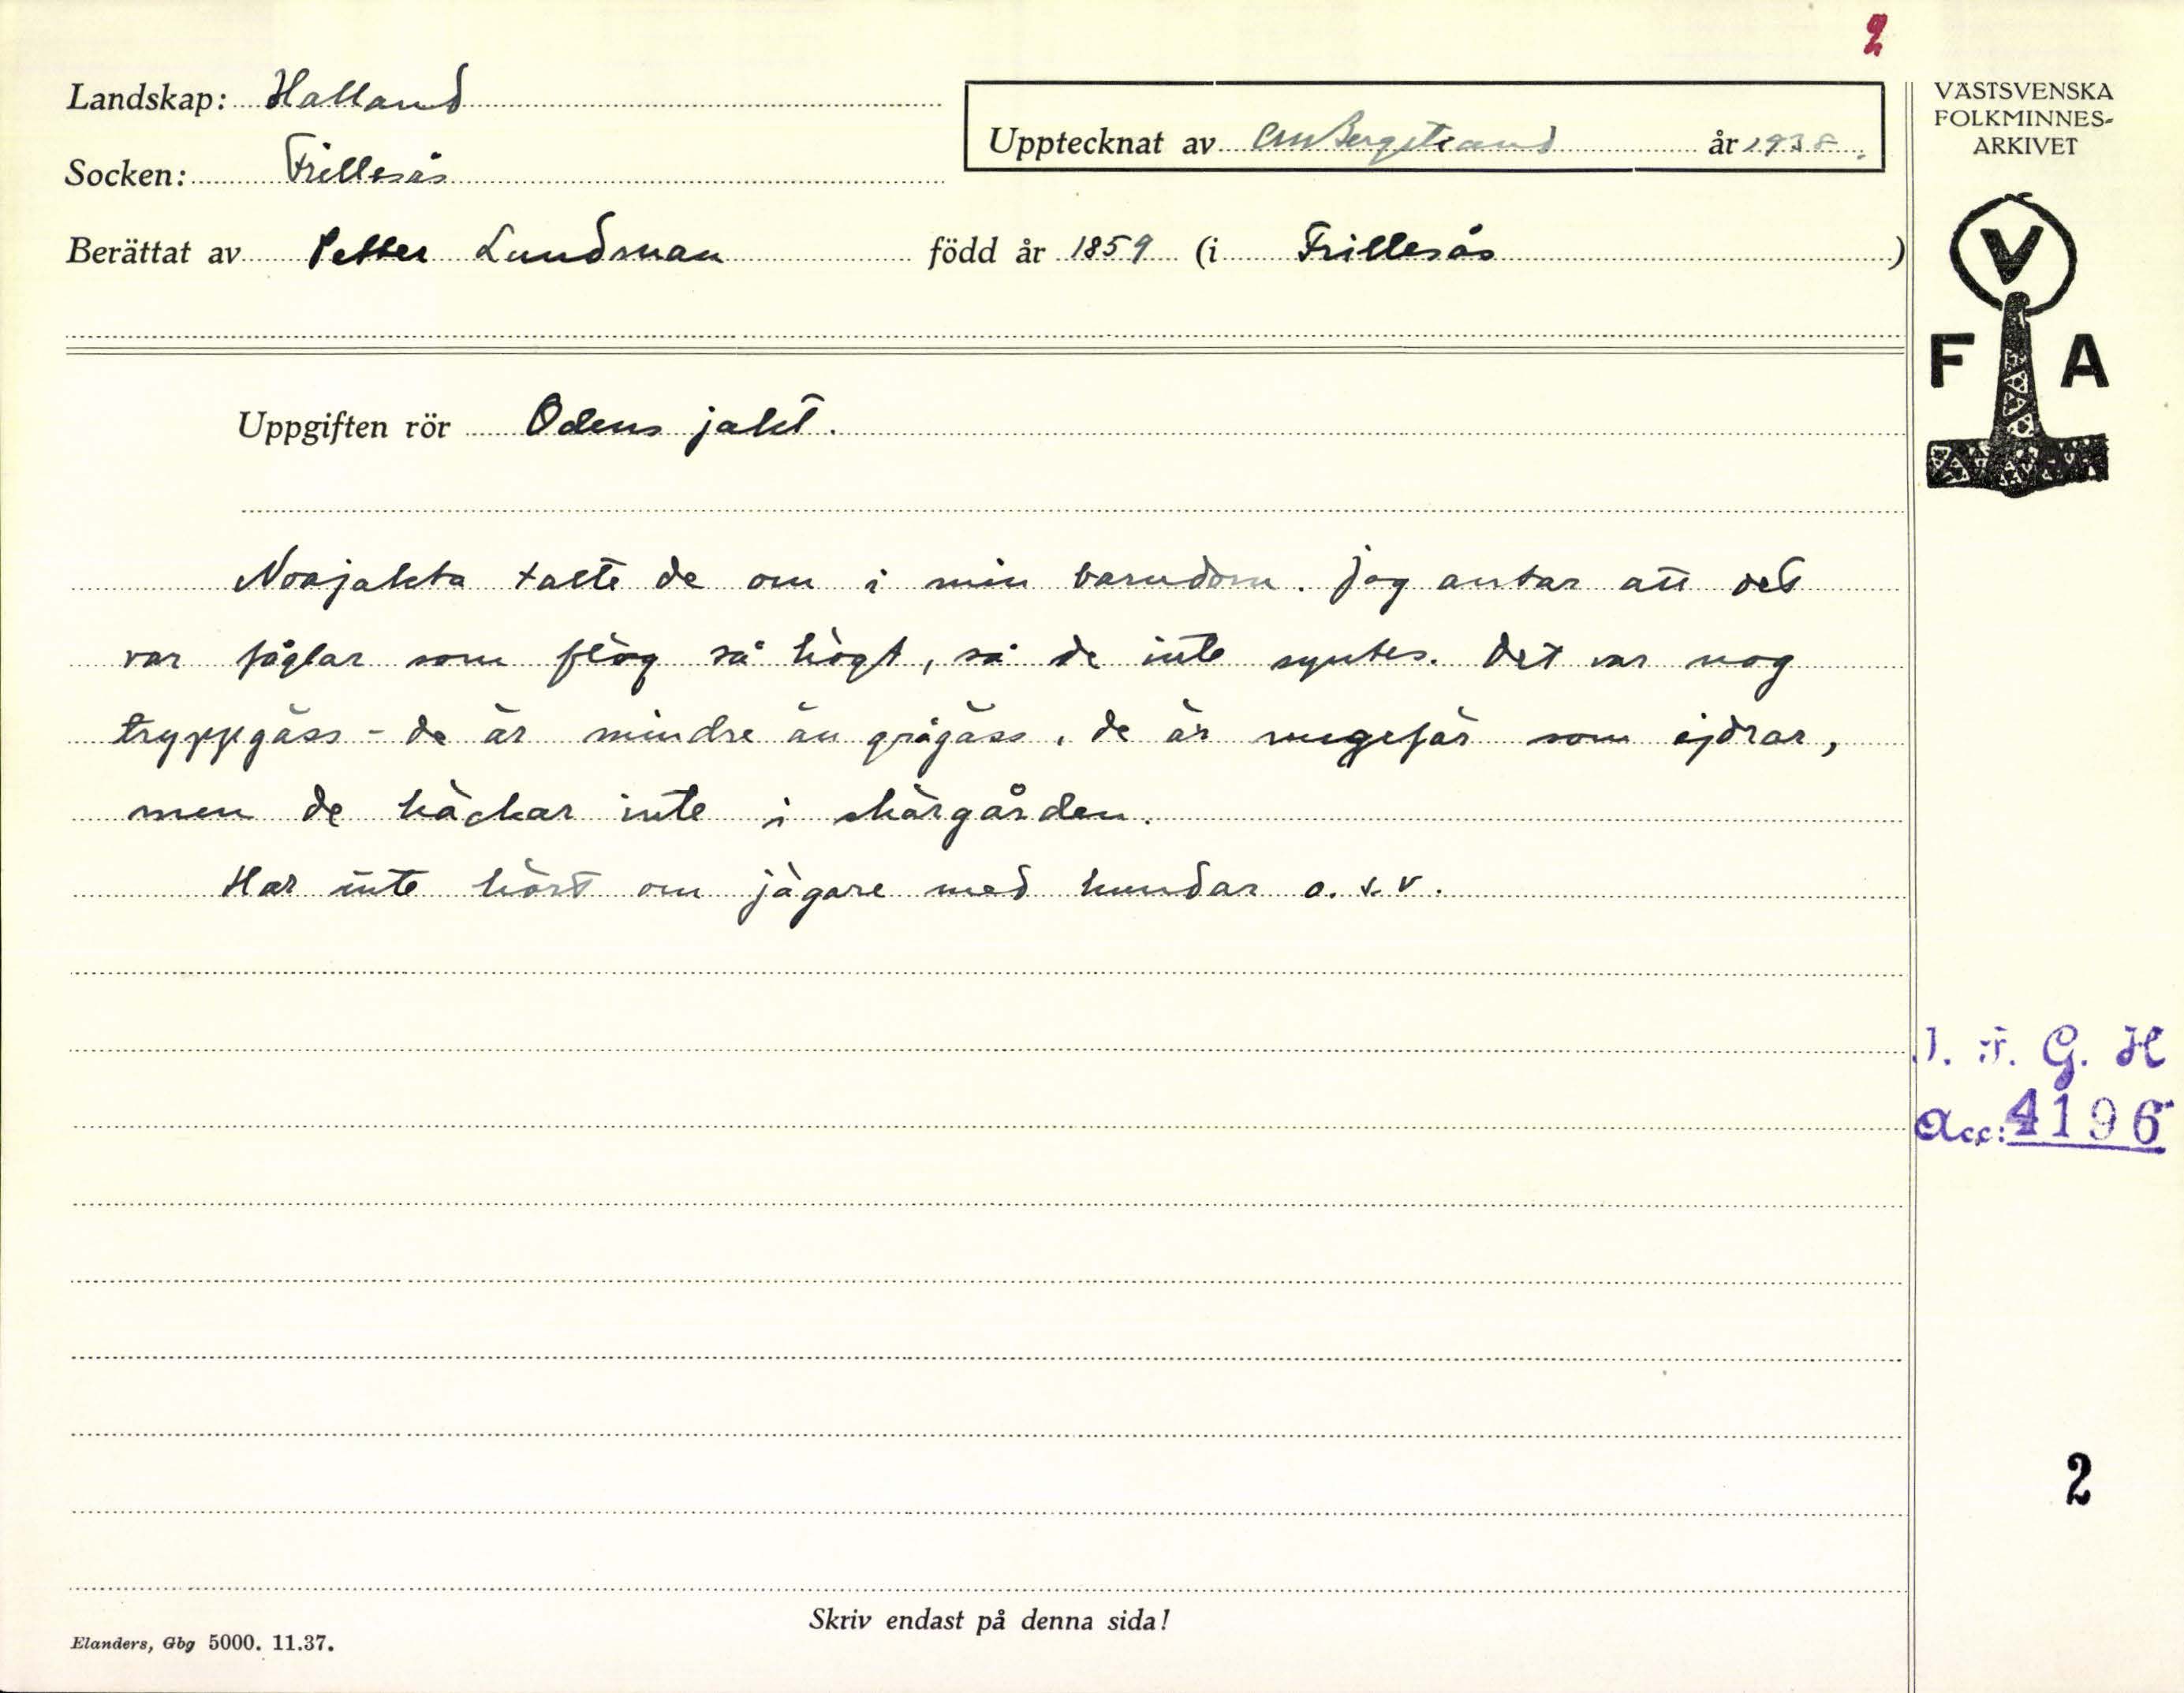 2
Landskap: Halland
Socken: Frillesås
Upptecknat av CMBergstrand år 1938.
Berättat av Petter Lundsman född år 1859 (i Frillesås)
VÄSTSVENSKA
FOLKMINNES-
ARKIVET
V
F A
Uppgiften rör Odens jakt.
Noajakta talte de om i min barndom. Jag antar att det
var fåglar som flög så högt, så de inte syntes. Det var nog
tryppgäss - de är mindre än grågäss, de är ungefär som ejdrar,
men de häckar inte i skärgården.
Har inte hört om jägare med hundar o.s.v.
I. F. G. H
Acc: 4196
2
Skriv endast på denna sida!
Elanders, Gbg 5000. 11.37.